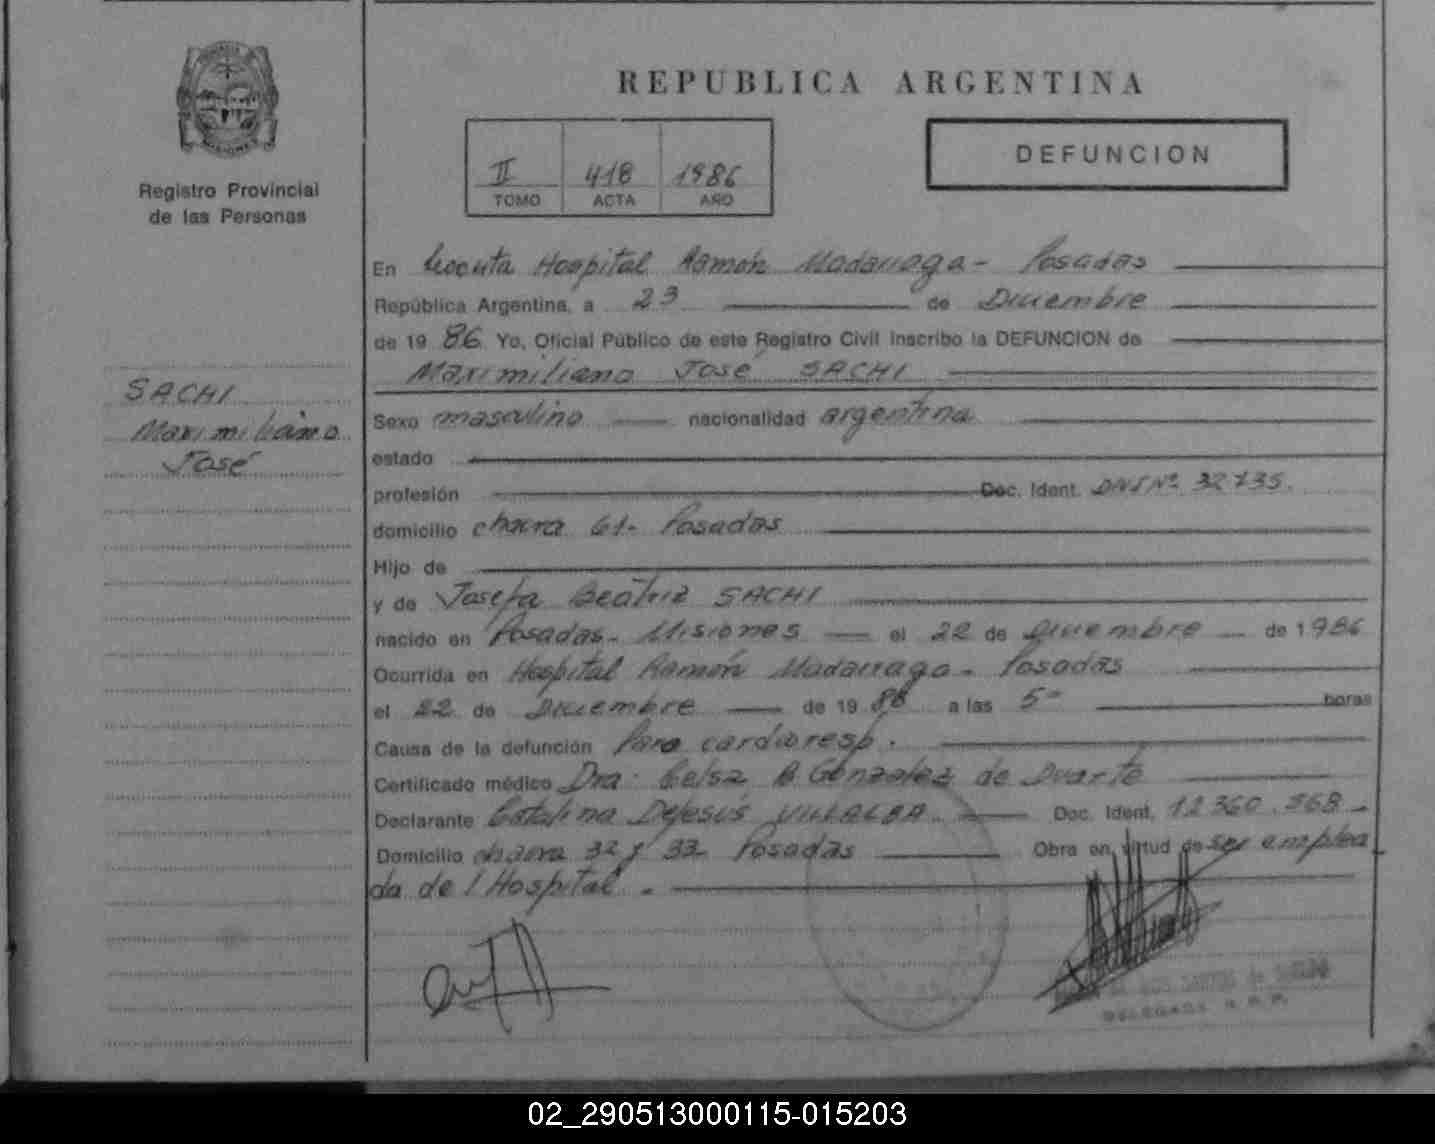 REPUBLICA ARGENTINA
II 418 1986
TOMO ACTA AÑO
DEFUNCION
Registro Provincial
de las Personas
SACHI
Maximiliano
José
En Hospital Ramón Madariaga - Posadas
República Argentina, a 23 de Diciembre
de 19 86 Yo, Oficial Público de este Registro Civil inscribo la DEFUNCION de
Maximiliano José SACHI
Sexo masculino nacionalidad argentina
estado
profesión Doc. Ident. DNI Nº 32735.
domicilio chacra 61- Posadas
Hijo de
y de Josefa Beatriz SACHI
nacido en Posadas - Misiones el 22 de Diciembre de 1986
Ocurrida en Hospital Ramón Madariaga - Posadas
el 22 de Diciembre de 19 86 a las 5 horas
Causa de la defunción Paro cardioresp.
Certificado médico Dra. Celsa B. Gonzalez de Duarte
Declarante Catalina Dejesús VILLALBA Doc. Ident. 12.360.568 -
Domicilio chacra 32 y 33 Posadas Obra en virtud de ser emplea
da del Hospital -
02_290513000115-015203